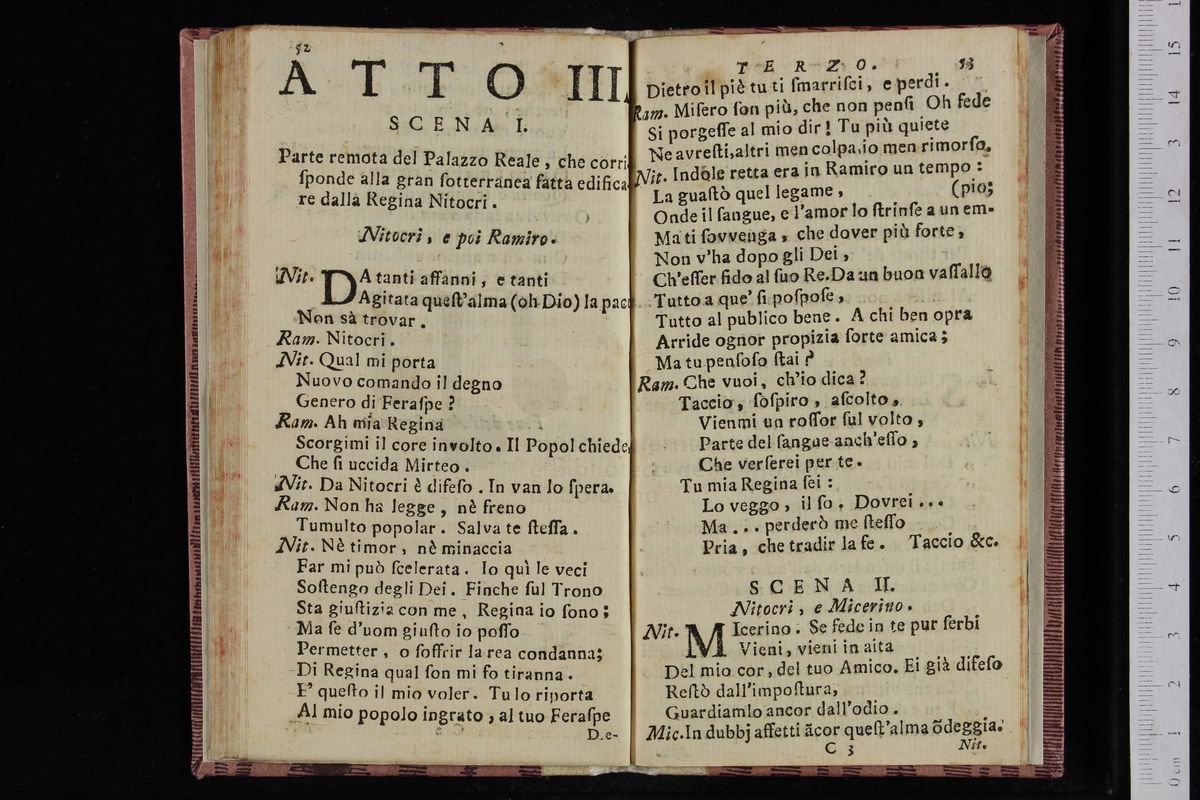 52
ATTO III.
SCENA I.
Parte remota del Palazzo Reale, che corri-
ſponde alla gran ſotterranea fatta edifica-
re dalla Regina Nitocri.
Nitocri, e poi Ramiro.
Nit. DA tanti affanni, e tanti
Agitata queſt'alma (oh Dio) la pace
Non sà trovar.
Ram. Nitocri.
Nit. Qual mi porta
Nuovo comando il degno
Genero di Feraſpe?
Ram. Ah mia Regina
Scorgimi il core involto. Il Popol chiede,
Che ſi uccida Mirteo.
Nit. Da Nitocri è difeſo. In van lo ſpera.
Ram. Non ha legge, nè freno
Tumulto popolar. Salva te ſteſſa.
Nit. Nè timor, nè minaccia
Far mi può ſcelerata. Io quì le veci
Soſtengo degli Dei. Finche ſul Trono
Sta giuſtizia con me, Regina io ſono;
Ma ſe d'uom giuſto io poſſo
Permetter, o ſoffrir la rea condanna;
Di Regina qual ſon mi fo tiranna.
E' queſto il mio voler. Tu lo riporta
Al mio popolo ingrato, al tuo Feraſpe
D.e-
TERZO. 53
Dietro il piè tu ti ſmarriſci, e perdi.
Ram. Miſero ſon più, che non penſi Oh fede
Si porgeſſe al mio dir! Tu più quiete
Ne avreſti, altri men colpa, io men rimorſo.
Nit. Indole retta era in Ramiro un tempo:
La guaſtò quel legame, (pio;
Onde il ſangue, e l'amor lo ſtrinſe a un em-
Ma ti ſovvenga, che dover più forte,
Non v'ha dopo gli Dei,
Ch'eſſer fido al ſuo Re. Da un buon vaſſallo
Tutto a que' ſi poſpoſe,
Tutto al publico bene. A chi ben opra
Arride ognor propizia ſorte amica;
Ma tu penſoſo ſtai?
Ram. Che vuoi, ch'io dica?
Taccio, ſoſpiro, aſcolto,
Vienmi un roſſor ſul volto,
Parte del ſangue anch'eſſo,
Che verſerei per te.
Tu mia Regina ſei:
Lo veggo, il ſo. Dovrei...
Ma... perderò me ſteſſo
Pria, che tradir la fe. Taccio &c.
SCENA II.
Nitocri, e Micerino.
Nit. MIcerino. Se fede in te pur ſerbi
Vieni, vieni in aita
Del mio cor, del tuo Amico. Ei già difeſo
Reſtò dall'impoſtura,
Guardiamlo ancor dall'odio.
Mic. In dubbj affetti ãcor queſt'alma õdeggia.
C 3 Nit.
15
14
13
12
11
10
9
8
7
6
5
4
3
2
1
0 cm